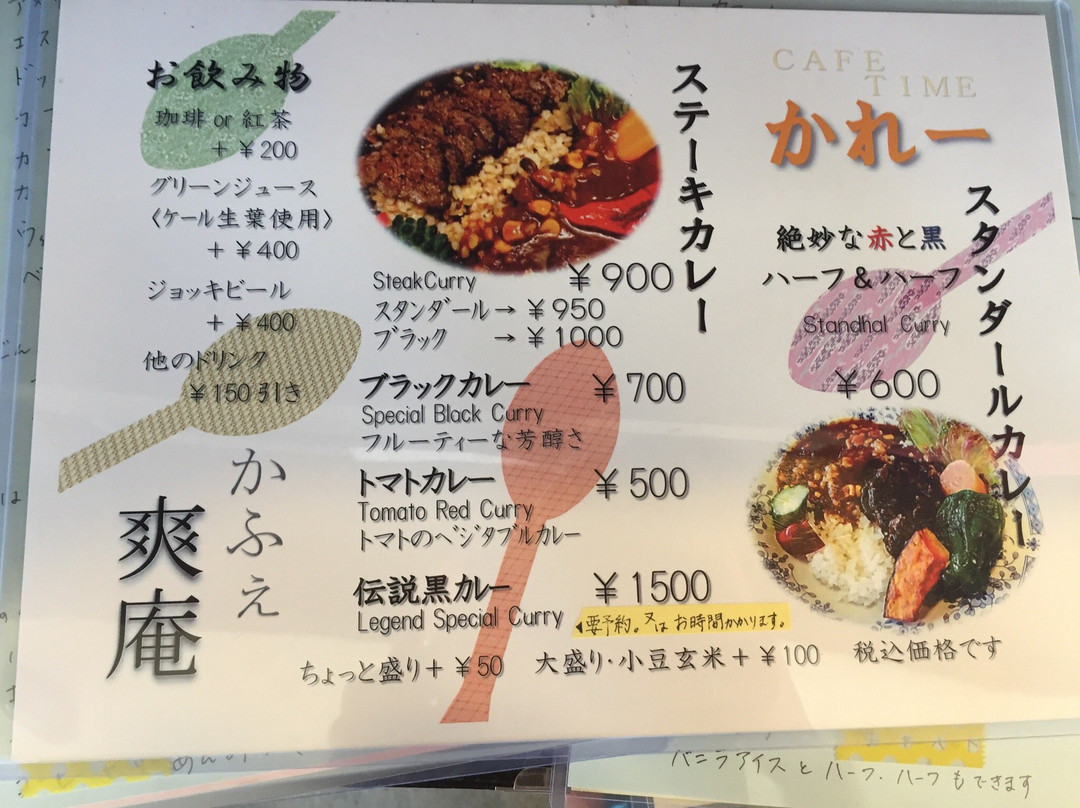 CAFE
TIME
かれー
スタンダールカレー
絶妙な赤と黒
ハーフ&ハーフ
Standhal Curry
¥600
ステーキカレー
SteakCurry ¥900
スタンダール→¥950
ブラック →¥1000
ブラックカレー ¥700
Special Black Curry
フルーティーな芳醇さ
トマトカレー ¥500
Tomato Red Curry
トマトのベジタブルカレー
伝説黒カレー ¥1500
Legend Special Curry
要予約。又はお時間かかります。
ちょっと盛り+¥50 大盛り・小豆玄米+¥100 税込価格です
お飲み物
珈琲or紅茶
+¥200
グリーンジュース
〈ケール生葉使用〉
+¥400
ジョッキビール
+¥400
他のドリンク
¥150引き
かふぇ
爽庵
バニラアイスとハーフ・ハーフもできます